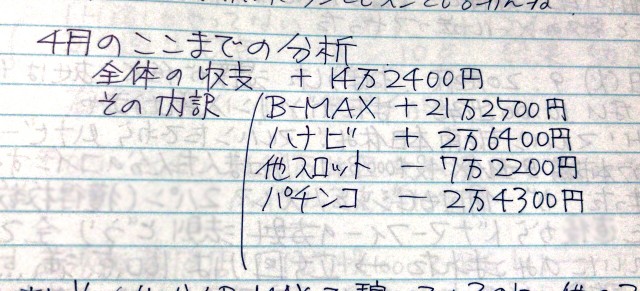 4月のここまでの分析
全体の収支 +14万2400円
その内訳 B-MAX +21万2500円
ハナビ + 2万6400円
他スロット - 7万2200円
パチンコ - 2万4300円